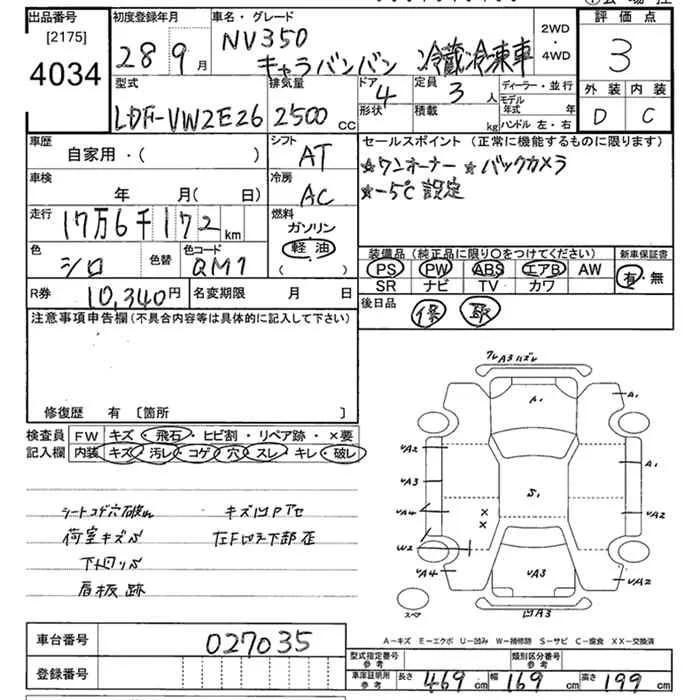 出品番号 初度登録年月 車名・グレード 2WD・4WD 評価点
[2175]
4034
28 9月
NV350
キャラバンバン 冷蔵冷凍車
3
型式 排気量 ドア 定員 ディーラー・並行 外装 内装
LDF-VW2E26 2500cc 4 3人 モデル年式 年
形状 積載 kg ハンドル 左・右 D C
車歴 自家用・( ) シフト AT
セールスポイント (正常に機能するものに限ります)
☆ワンオーナー ☆バックカメラ
☆-5℃設定
車検 年 月(日) 冷房 AC
走行 17万6千172km
燃料 ガソリン 軽油 ( )
色 シロ 色替 色コード QM1
装備品 (純正品に限り〇をつけてください) 新車保証書
PS PW ABS エアB AW 有・無
SR ナビ TV カワ
R券 10,340円 名変期限 月 日
後日品 保 取
注意事項申告欄(不具合内容等は具体的に記入して下さい)
修復歴 有 〔箇所 〕
検査員 FW キズ・飛石・ヒビ割・リペア跡・×要
記入欄 内装 キズ・汚レ・コゲ・穴・スレ・キレ・破レ
シートコゲ穴破れ キズ凹アセ
荷室キズ
看板跡
A3ハズレ
A1
A1
A1
S1
VA2
VA3
VA4
W2
VA4
VA2
VA2
VA3
凹A3
スペア
A−キズ E−エクボ U−凹み W−補修跡 S−サビ C−腐食 XX−交換済
車台番号 027035
登録番号
型式指定番号 参考 類別区分番号 参考
車庫証明用 参考 長さ 469cm 幅 169cm 高さ 199cm